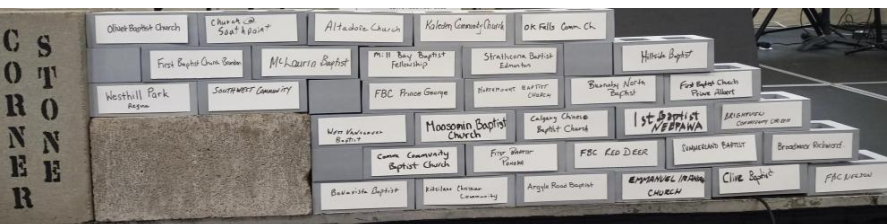 CORNER
STONE
Olivet Baptist Church
Church @
Southpoint
Altadore Church
Kaleden Community Church
OK Falls Comm. Ch.
First Baptist Church Brandon
McLaurin Baptist
Mill Bay Baptist
Fellowship
Strathcona Baptist
Edmonton
Hillside Baptist
Westhill Park
Regina
SOUTHWEST COMMUNITY
FBC Prince George
BAPTIST
CHURCH
Burnaby North
Baptist
First Baptist Church
Prince Albert
West Vancouver
Baptist
Moosomin Baptist
Church
Calgary Chinese
Baptist Church
1st Baptist
NEEPAWA
BRIGHTVIEW
COMMUNITY CHURCH
Community
Baptist Church
First Baptist
Penoka
FBC RED DEER
SUMMERLAND BAPTIST
Broadway Richmond
Bonavista Baptist
Kitsilano Christian
Community
Argyle Road Baptist
EMMANUEL IRANIAN
CHURCH
Clive Baptist
FBC NELSON